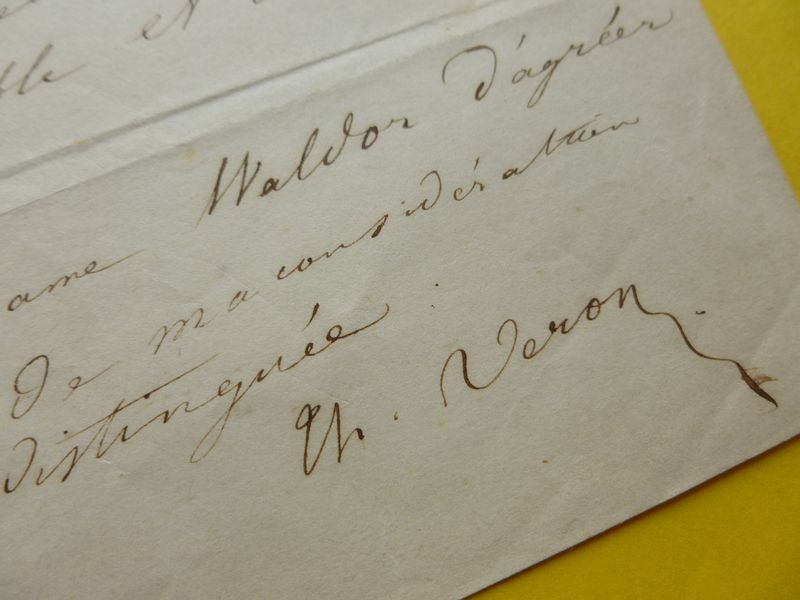 et
ame Waldor d'agréer
de ma considération
distinguée.
Th. Veron